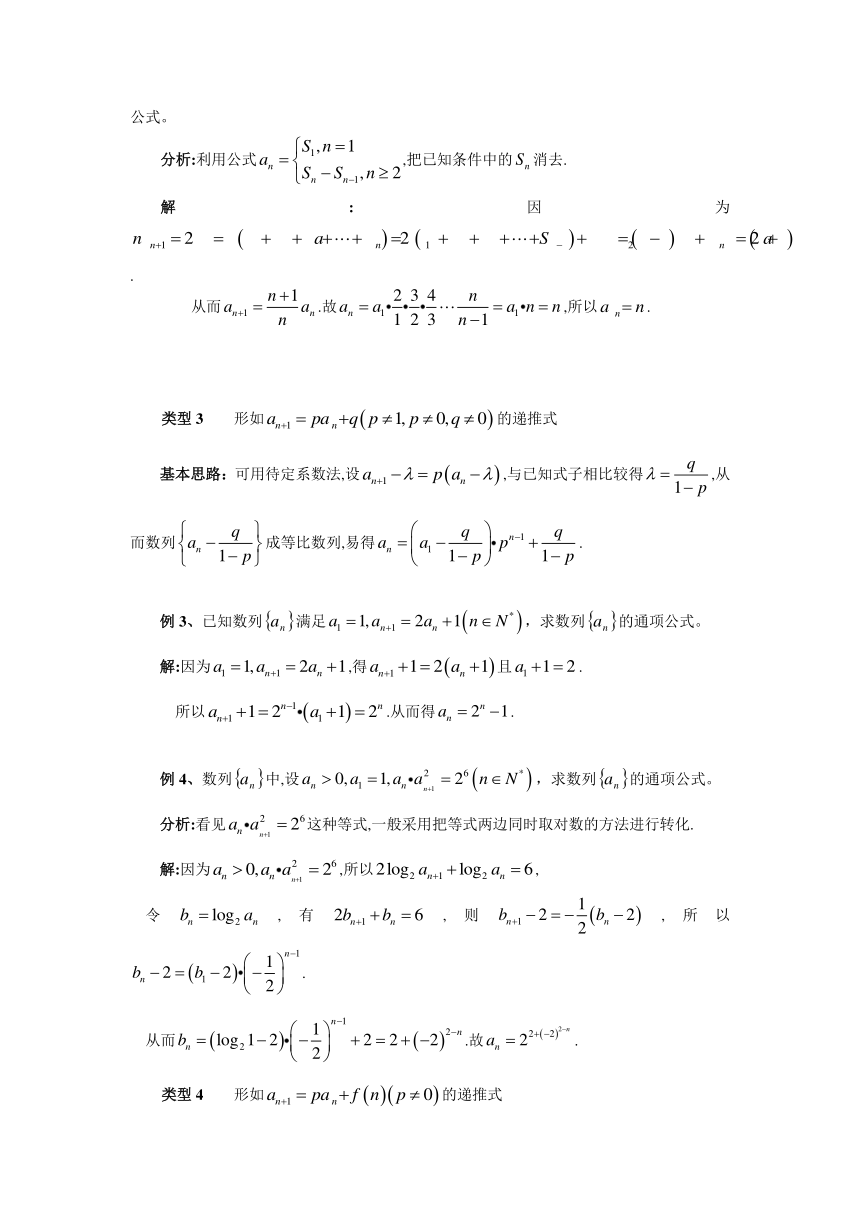 公式。
分析:利用公式 a_n = { S_1, n = 1 ; S_n − S_{n−1}, n ≥ 2 ,把已知条件中的 S_n 消去.
解 : 因 为
n _{n+1} = 2 = ( + + a+⋯+ _n )=2 ( _1 + + +⋯+S _− )+ =_2( − ) + _n =(2 a+ )
.
从而 a_{n+1} = \frac{n+1}{n} a_n .故 a_n = a_1•\frac{2}{1}•\frac{3}{2}•\frac{4}{3} ⋯ \frac{n}{n−1} = a_1•n = n ,所以 a _n = n .
类型 3 形如 a_{n+1} = pa_n +q( p ≠ 1, p ≠ 0, q ≠ 0) 的递推式
基本思路: 可用待定系数法,设 a_{n+1} − λ = p(a_n − λ) ,与已知式子相比较得 λ = \frac{q}{1−p} ,从
而数列 { a_n − \frac{q}{1−p} } 成等比数列,易得 a_n = ( a_1 − \frac{q}{1−p} )• p^{n−1} + \frac{q}{1−p} .
例 3、已知数列 {a_n} 满足 a_1 = 1, a_{n+1} = 2a_n +1(n ∈ N^*) ，求数列 {a_n} 的通项公式。
解:因为 a_1 = 1, a_{n+1} = 2a_n +1 ,得 a_{n+1} +1 = 2(a_n +1) 且 a_1 +1 = 2 .
所以 a_{n+1} +1 = 2^{n−1}•(a_1 +1) = 2^n .从而得 a_n = 2^n −1 .
例 4、数列 {a_n} 中,设 a_n > 0, a_1 = 1, a_n•a_{n+1}^2 = 2^6 (n ∈ N^*) ，求数列 {a_n} 的通项公式。
分析:看见 a_n•a_{n+1}^2 = 2^6 这种等式,一般采用把等式两边同时取对数的方法进行转化.
解:因为 a_n > 0, a_n•a_{n+1}^2 = 2^6 ,所以 2log_2 a_{n+1} + log_2 a_n = 6 ,
令 b_n = log_2 a_n , 有 2b_{n+1} + b_n = 6 , 则 b_{n+1} − 2 = −\frac{1}{2}(b_n − 2) , 所 以
b_n − 2 = (b_1 − 2)•(−\frac{1}{2})^{n−1} .
从而 b_n = (log_2 1 − 2)•(−\frac{1}{2})^{n−1} + 2 = 2 + (−2)^{2−n} .故 a_n = 2^{2+(−2)^{2−n}} .
类型 4 形如 a_{n+1} = pa_n + f (n)( p ≠ 0) 的递推式